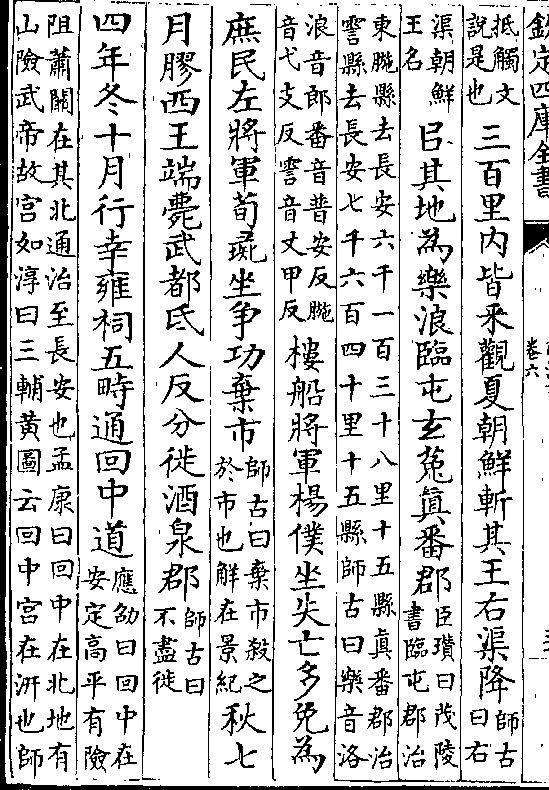 欽定四庫全書
卷六
抵觸文說是也三百里內皆来觀夏朝鮮斬其王右渠降師古曰右
渠朝鮮王名㠯其地為樂浪臨屯玄菟真番郡臣瓚曰茂陵書臨屯郡治
東暆縣去長安六千一百三十八里十五縣真番郡治
霅縣去長安七千六百四十里十五縣師古曰樂音洛
浪音郎番音普安反暆音弋支反霅音丈甲反樓船將軍楊僕坐失亡多免為
庶民左將軍荀彘坐争功棄市師古曰棄市殺之於市也解在景紀秋七
月膠西王端薨武都氐人反分徙酒泉郡師古曰不盡徙
四年冬十月行幸雍祠五畤通回中道應劭曰回中在安定高平有險
阻蕭關在其北通治至長安也孟康曰回中在北地有
山險武帝故宮如淳曰三輔黄圖云回中宮在汧也師